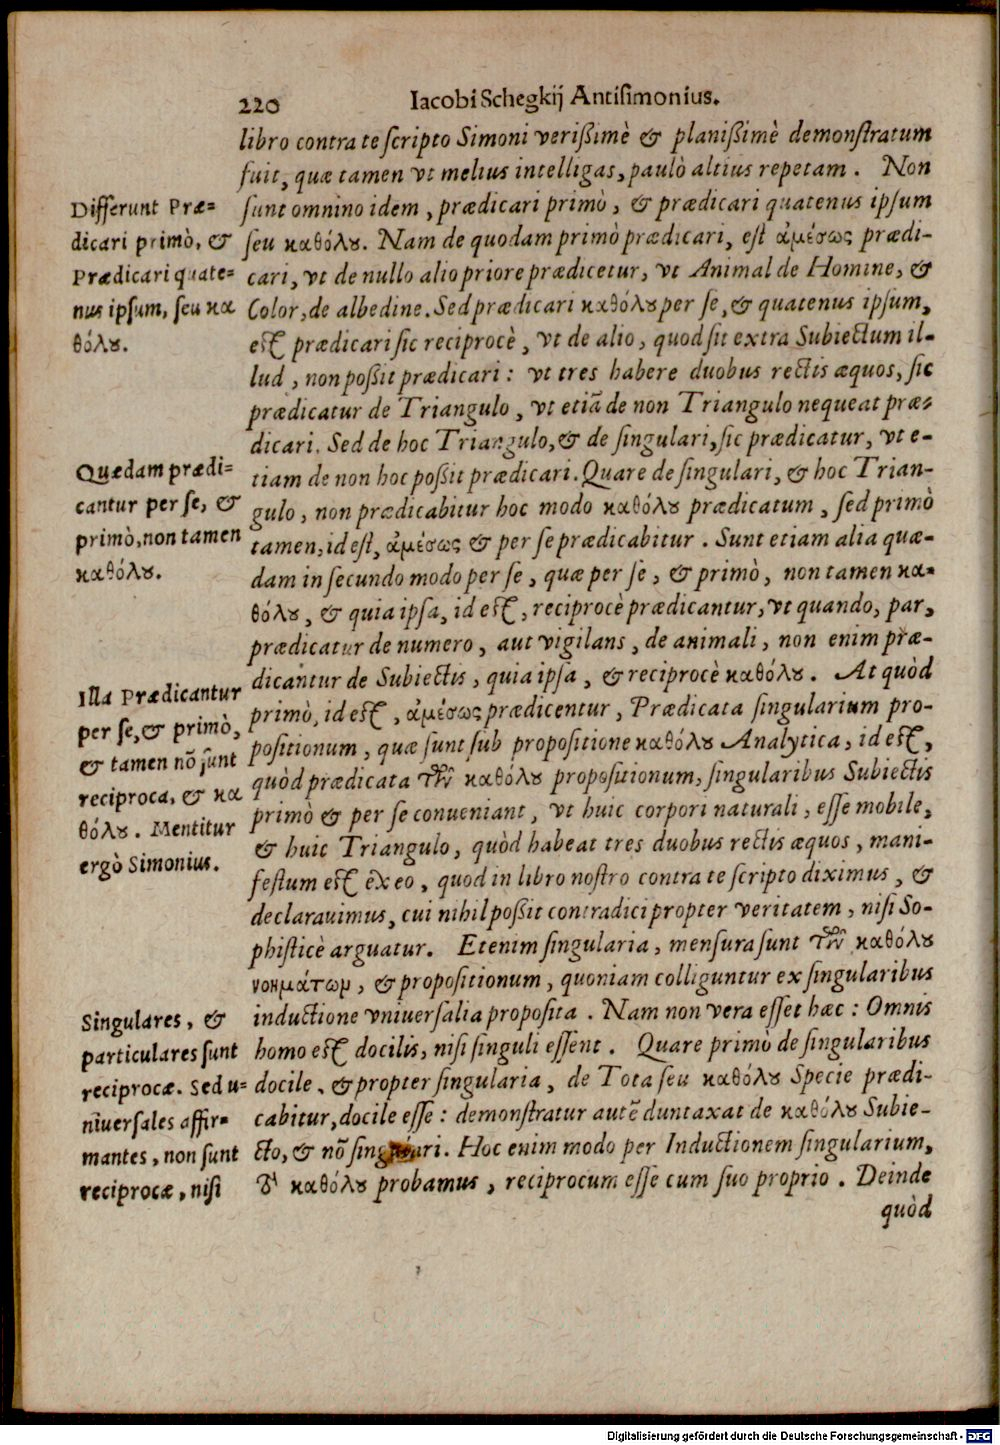 220 Iacobi Schegkij Antisimonius.
libro contra te scripto Simoni verißimè & planißimè demonstratum
fuit, quæ tamen vt melius intelligas, paulò altius repetam. Non
sunt omnino idem, prædicari primò, & prædicari quatenus ipsum
seu καθόλȣ. Nam de quodam primò prædicari, est ἀμέσως prædi-
cari, vt de nullo alio priore prædicetur, vt Animal de Homine, &
Color, de albedine. Sed prædicari καθόλȣ per se, & quatenus ipsum,
est prædicari sic reciprocè, vt de alio, quod sit extra Subiectum il-
lud, non poßit prædicari: vt tres habere duobus rectis æquos, sic
prædicatur de Triangulo, vt etiã de non Triangulo nequeat præ-
dicari. Sed de hoc Triangulo, & de singulari, sic prædicatur, vt e-
tiam de non hoc poßit prædicari. Quare de singulari, & hoc Trian-
gulo, non prædicabitur hoc modo καθόλȣ prædicatum, sed primò
tamen, id est, ἀμέσως & per se prædicabitur. Sunt etiam alia quæ-
dam in secundo modo per se, quæ per se, & primò, non tamen κα-
θόλȣ, & quia ipsa, id est, reciprocè prædicantur, vt quando, par,
prædicatur de numero, aut vigilans, de animali, non enim præ-
dicantur de Subiectis, quia ipsa, & reciprocè καθόλȣ. At quòd
primò, id est, ἀμέσως prædicentur, Prædicata singularium pro-
positionum, quæ sunt sub propositione καθόλȣ Analytica, id est,
quòd prædicata τῶν καθόλȣ propositionum, singularibus Subiectis
primò & per se conueniant, vt huic corpori naturali, esse mobile,
& huic Triangulo, quòd habeat tres duobus rectis æquos, mani-
festum est ex eo, quod in libro nostro contra te scripto diximus, &
declarauimus, cui nihil poßit contradici propter veritatem, nisi So-
phisticè arguatur. Etenim singularia, mensura sunt τῶν καθόλȣ
νοημάτωμ, & propositionum, quoniam colliguntur ex singularibus
inductione vniuersalia proposita. Nam non vera esset hæc: Omnis
homo est docilis, nisi singuli essent. Quare primò de singularibus
docile, & propter singularia, de Tota seu καθόλȣ Specie prædi-
cabitur, docile esse: demonstratur autẽ duntaxat de καθόλȣ Subie-
cto, & nõ singulari. Hoc enim modo per Inductionem singularium,
καθόλȣ probamus, reciprocum esse cum suo proprio. Deinde
quòd
Differunt Præ-
dicari primò, &
Prædicari quate-
nus ipsum, seu κα
θόλȣ.
Quædam prædi-
cantur per se, &
primò, non tamen
καθόλȣ.
Illa Prædicantur
per se, & primò,
& tamen nõ sunt
reciproca, & κα
θόλȣ. Mentitur
ergò Simonius.
Singulares, &
particulares sunt
reciprocæ. Sed u-
niuersales affir-
mantes, non sunt
reciprocæ, nisi
Digitalisierung gefördert durch die Deutsche Forschungsgemeinschaft - DFG